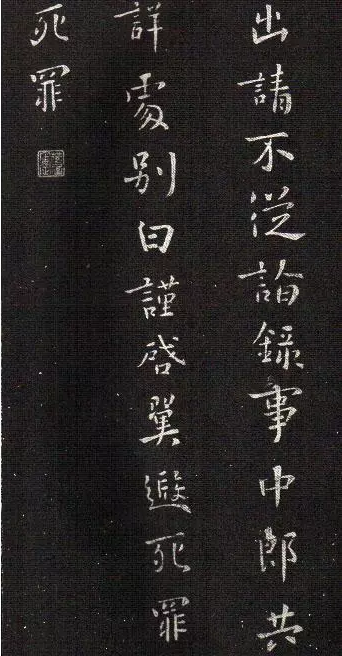 出請不從論錄事中郎共
詳處別曰謹啓翼遐死罪
死罪